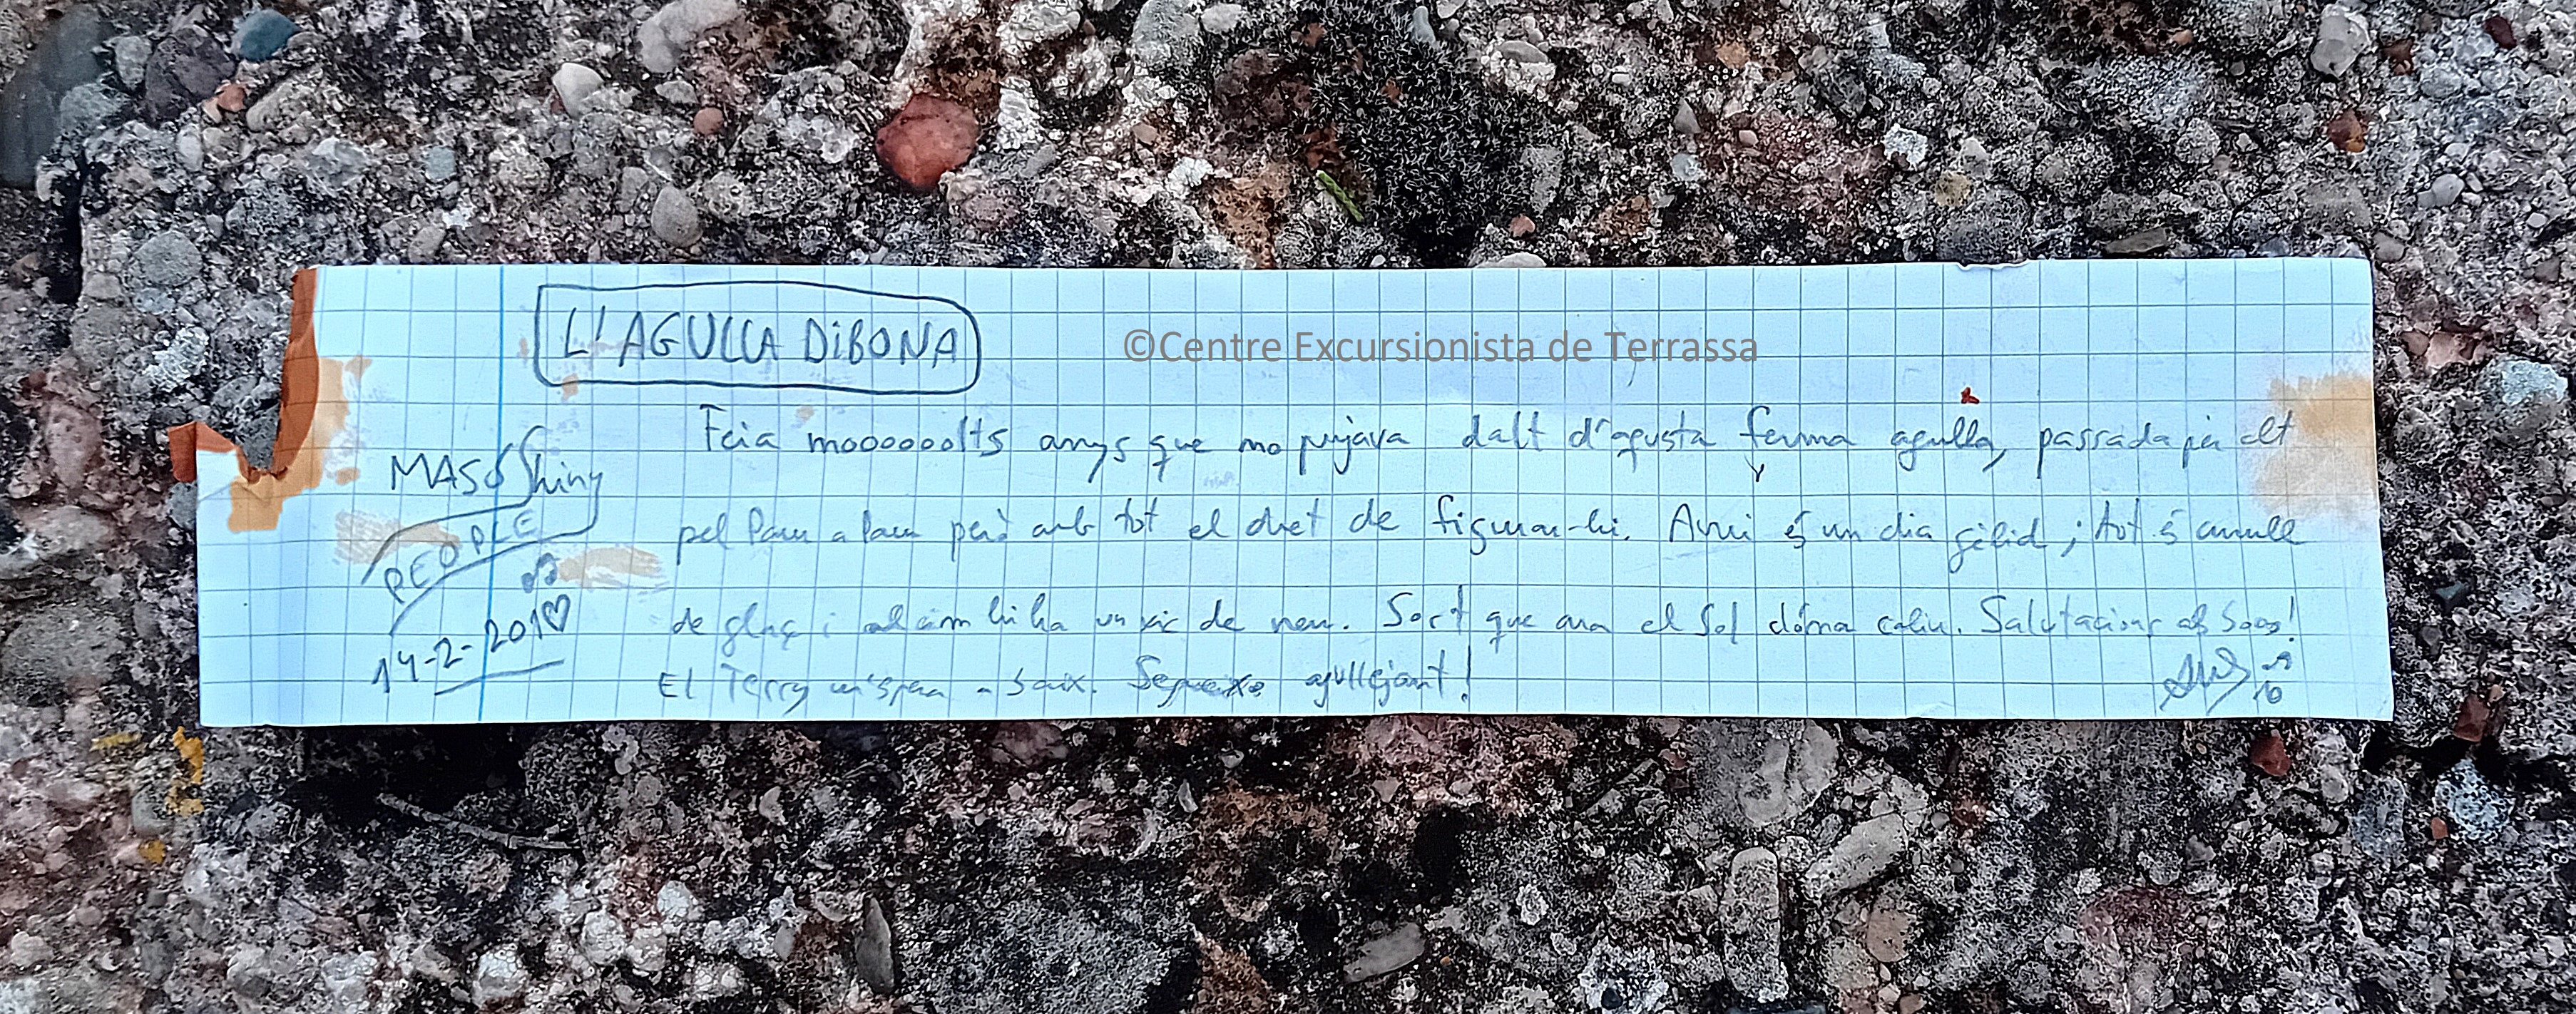 L'AGULLA DIBONA
©Centre Excursionista de Terrassa
Feia mooooolts anys que no pujava dalt d'aqusta ferma agulla, passada per alt
pel Pam a Pam però amb tot el dret de figurar-hi. Avui és un dia gèlid; tot és curull
de glaç i al cim hi ha un xic de neu. Sort que ara el Sol dóna caliu. Salutacions als Socs!
El Terry m'espera a baix. Segueixo agullejant!
MASO Shiny
PEOPLE
14-2-201♡